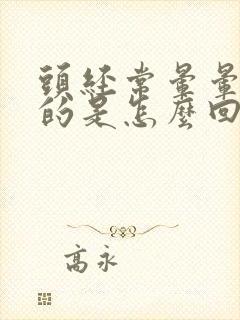 頭經常暈暈
的是怎麼回
高永